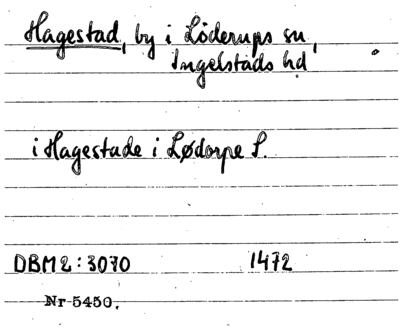 Hagestad, by i Löderups sn,
Ingelstads hd
i Hagestade i Lødorpe S.
DBM2:3070 1472
Nr 5450.